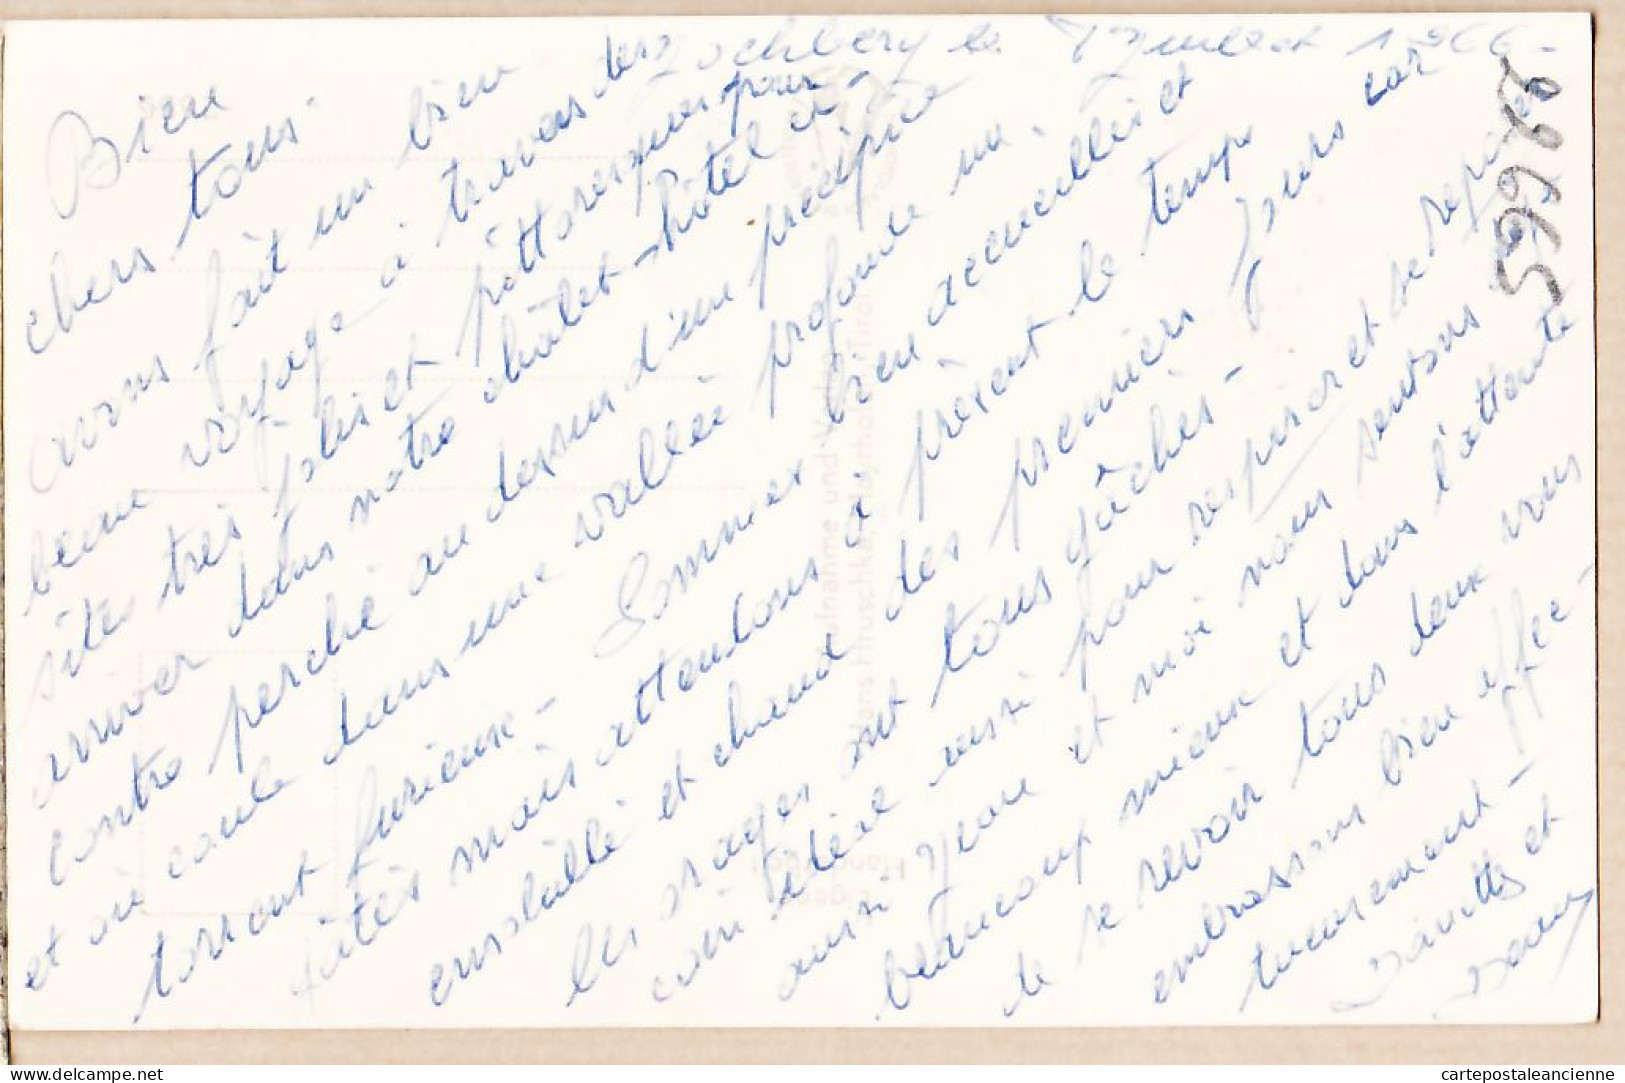 Hochberg le 7 Juillet 1966 -
Bien
chers tous.
avons fait un bien
beau voyage à travers des
sites très jolis et pittoresques pour
arriver dans notre châlet-hôtel
contre perché au dessus d'une précipice
et où coule dans une vallée profonde un
torrent furieux -
Sommes bien accueillis et
fêtés mais attendons à présent le temps
ensoleillé et chaud des premiers jours car
les orages ont tous gâchés -
aussi pour respirer et se reposer
aussi Jeane et moi nous sentons
beaucoup mieux et dans l'attente
de se revoir tous deux vous
embrassons bien affec-
tueusement -
et
59966
Aufnahme und Verlag
Hans Hruschka, Mayrhofen, Tirol
cartepostaleancienne.com
cartepostaleancienne